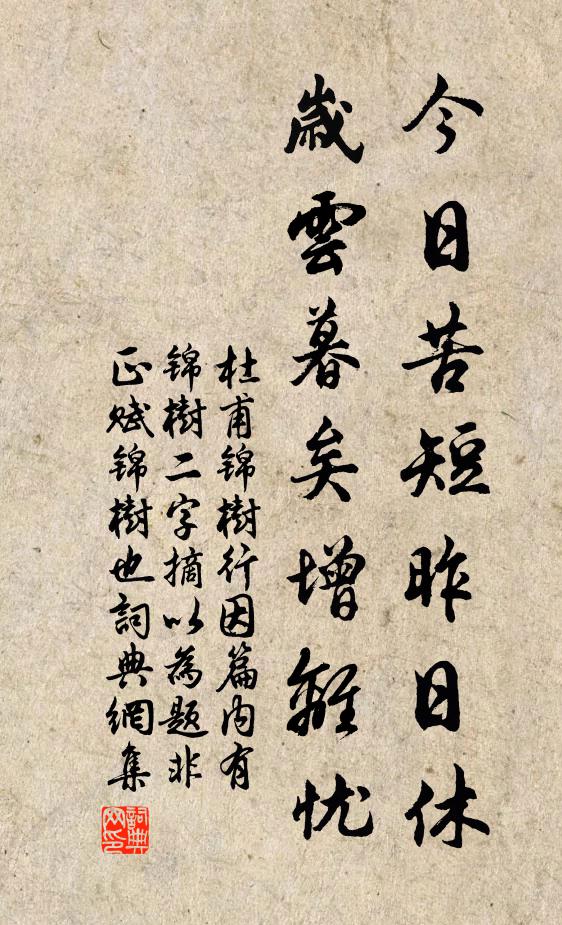 今日苦短昨日休
歲雲暮矣增離忧
杜甫錦樹行因篇內有
錦樹二字摘以為題非
正賦錦樹也詞典網集
詞典网印